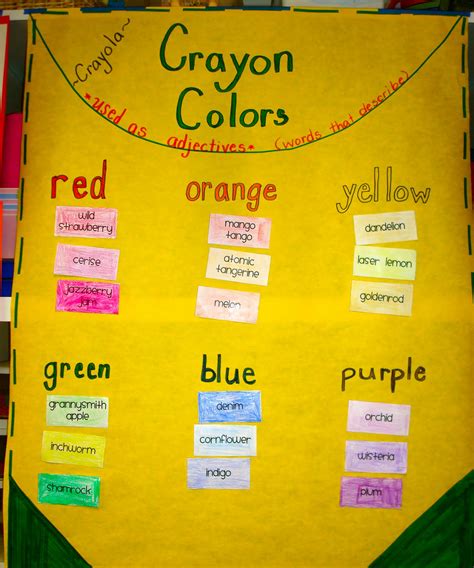 ~Crayola~
Crayon
Colors
*used as adjectives* (words that describe)
red
wild
strawberry
cerise
jazzberry
jam
orange
mango
tango
atomic
tangerine
melon
yellow
dandelion
laser lemon
goldenrod
green
grannysmith
apple
inchworm
shamrock
blue
denim
cornflower
indigo
purple
orchid
wisteria
plum